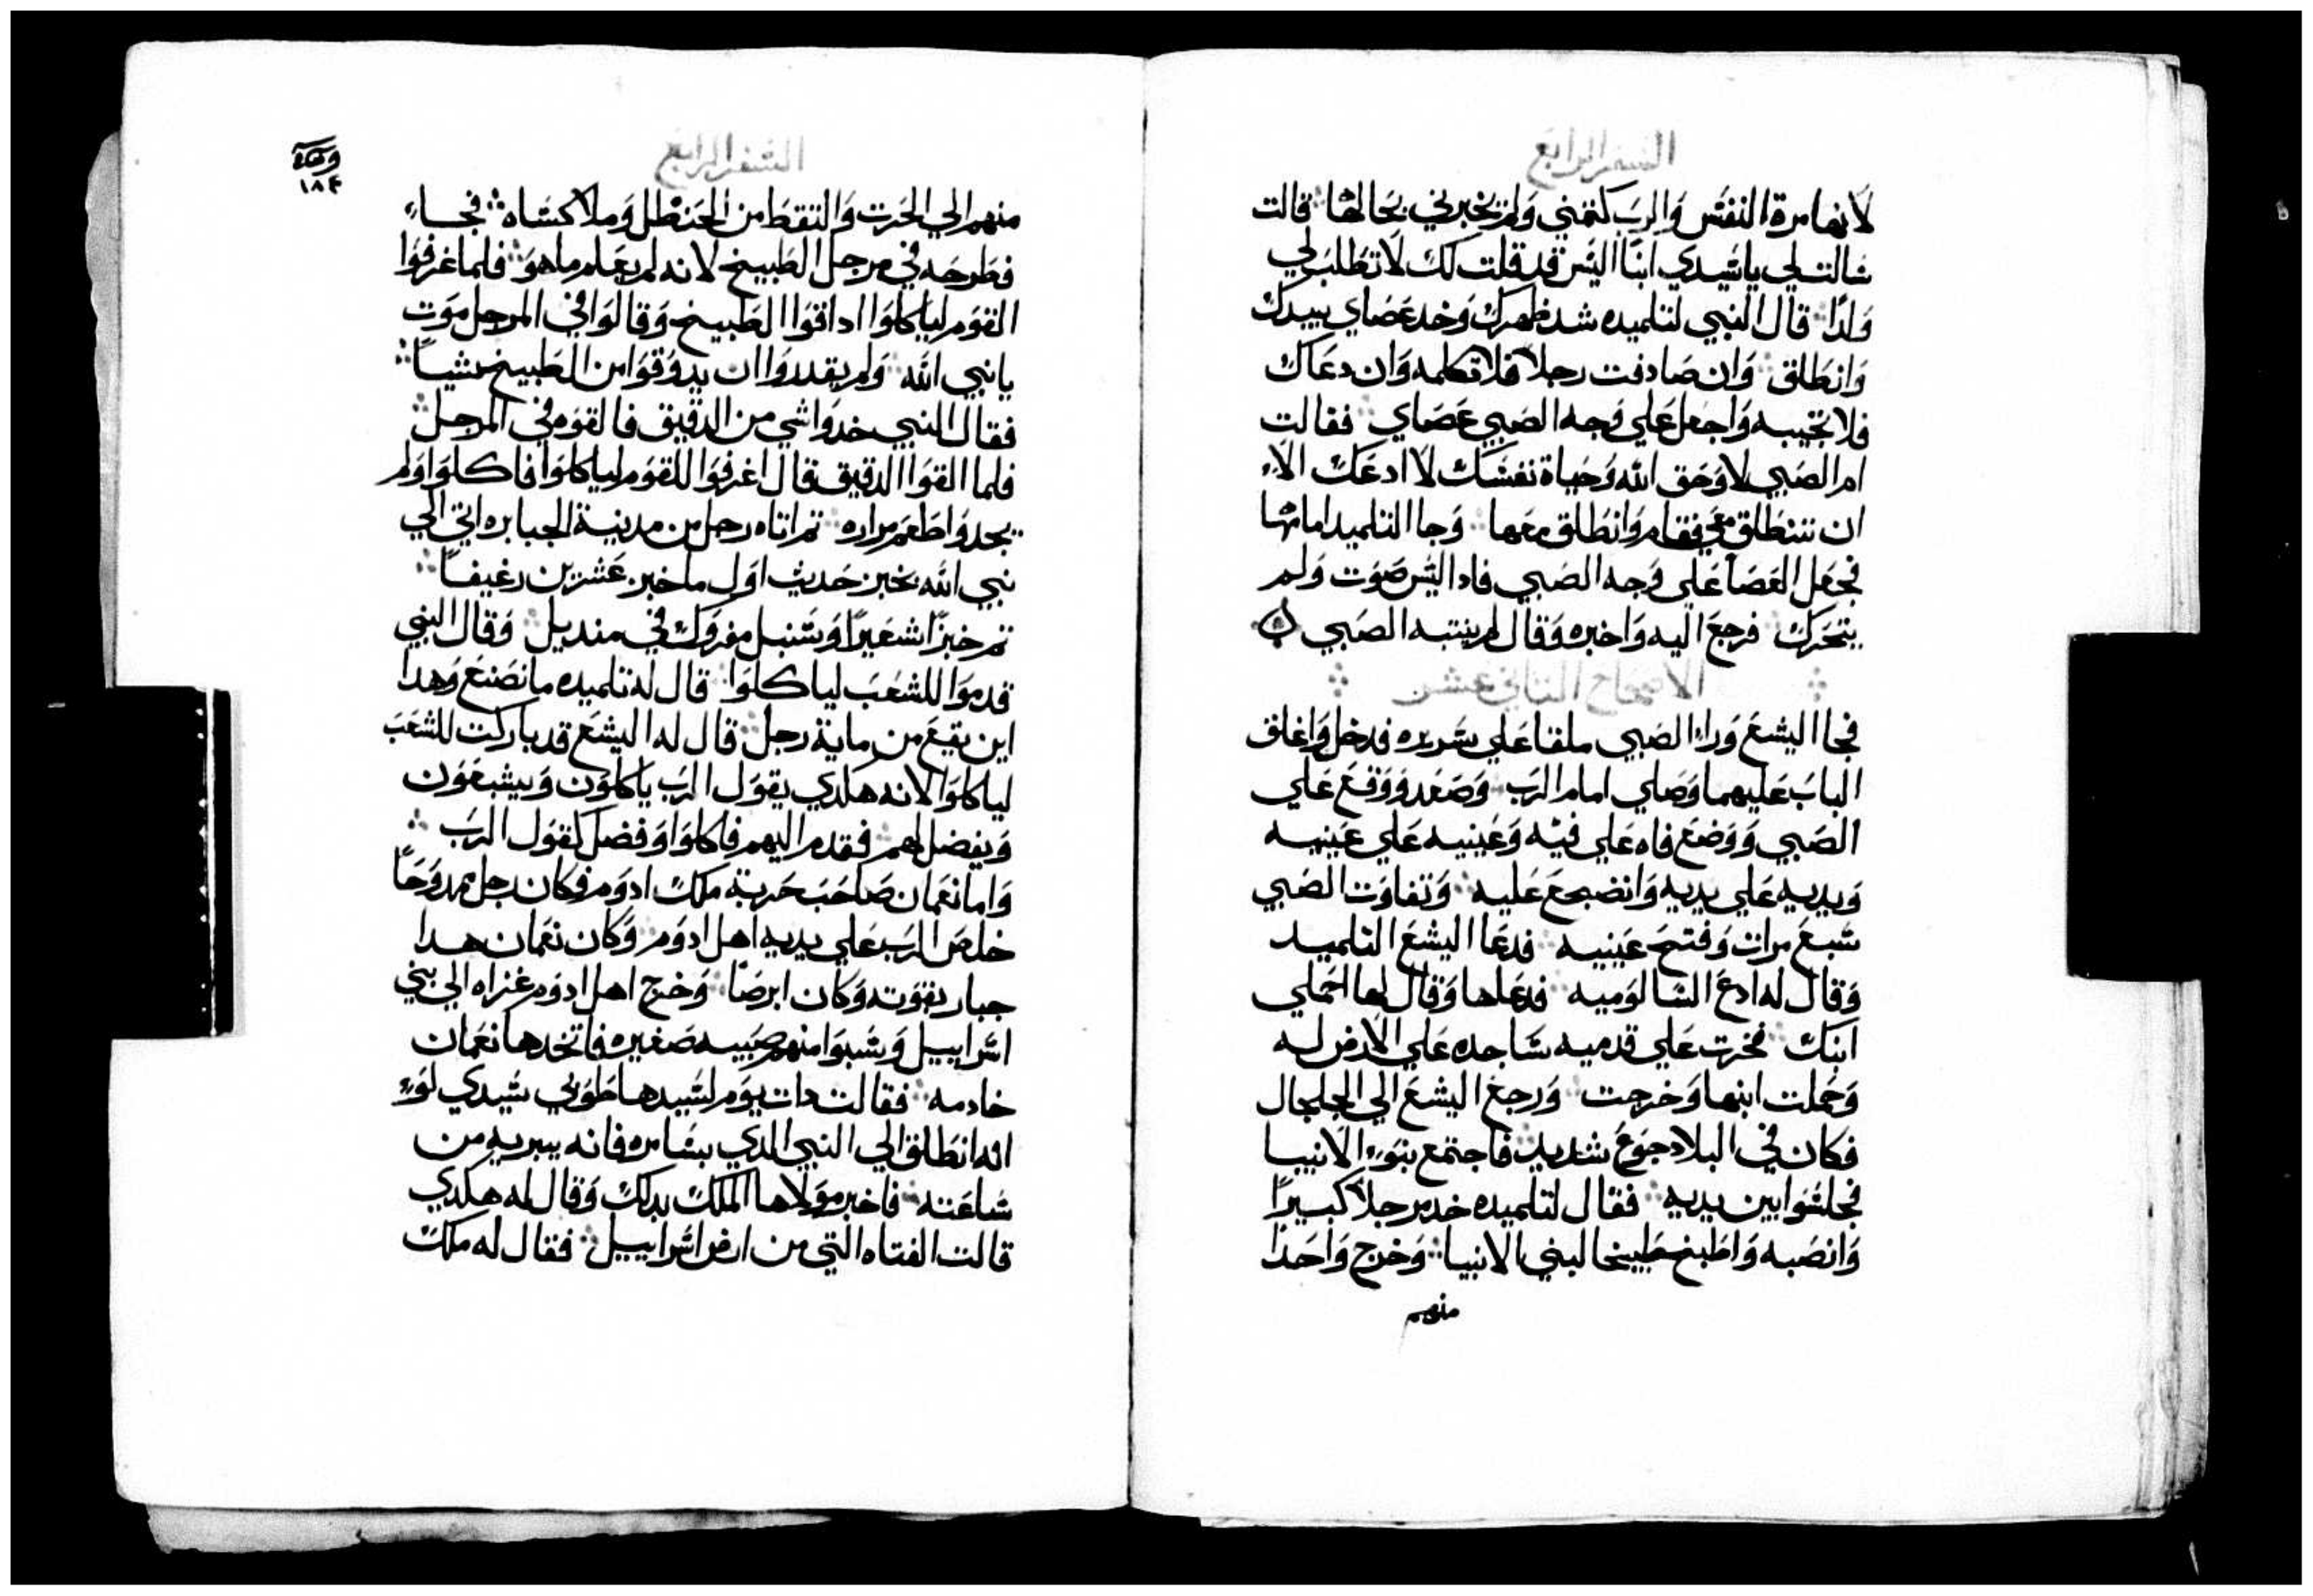 السفر الرابع
لانها مرة النفس والرب كتمني ولم يخبرني بحالها قالت
سالت لي ياسيدي ابنا اليس قد قلت لك لا تطلب لي
ولدا قال النبي لتلميده شد ظهرك وخد عصاي بيدك
وانطلق وان صادفت رجلا فلا تكلمه وان دعاك
فلا تجيبه واجعل علي وجه الصبي عصاي فقالت
ام الصبي لا وحق الله وحياة نفسك لا ادعك الا
ان تنطلق معي فقام وانطلق معها وجا التلميد امامها
فجعل العصا علي وجه الصبي فادا ليس صوت ولم
يتحرك فرجع اليه واخبره وقال لم ينتبه الصبي
الاصحاح التاني عشر
فجا اليشع وراء الصبي ملقا علي سريره فدخل واغلق
الباب عليهما وصلي امام الرب وصعد ووقع علي
الصبي ووضع فاه علي فيه وعينيه علي عينيه
ويديه علي يديه وانضجع عليه وتفاوت الصبي
سبع مرات وفتح عينيه فدعا اليشع التلميد
وقال له ادع الشالوميه فدعاها وقال لها احملي
ابنك فخرت علي قدميه ساجده علي الارض له
وحملت ابنها وخرجت ورجع اليشع الي الجلجال
فكان في البلاد جوع شديد فاجتمع بنوء الانبيا
فجلسوا بين يديه فقال لتلميده خد مرجلا كبيرا
وانصبه واطبخ طبيخا لبني الانبيا وخرج واحدا
منهم
السفر الرابع
١٨٤
منهم الي الحرت والتقط من الحنظل وملا كساه فجاء
فطرحه في مرجل الطبيخ لانه لم يعلم ما هو فلما غرفوا
القوم لياكلوا اداقوا الطبيخ وقالوا في المرجل موت
يا نبي الله ولم يقدروا ان يدوقوا من الطبيخ شيا
فقال النبي خدوا شي من الدقيق فالقوه في المرجل
فلما القوا الدقيق قال اغرفوا للقوم لياكلوا فاكلوا ولم
يجدوا طعم مراره تم اتاه رجل من مدنية الجبابره اتي الي
نبي الله بخبز حديث اول ما خبز عشرين رغيفا
تم خبزا شعيرا وسنبل مفروك في منديل وقال النبي
قدموا للشعب لياكلوا قال له تلميده ما نصنع وهدا
اين يقع من ماية رجل قال له اليشع قد باركت للشعب
لياكلوا لانه هكدي يقول الرب ياكلون ويشبعون
ويفضل لهم فقدم اليهم فاكلوا وفضل كقول الرب
واما نعمان صاحب حربة ملك ادوم فكان رجل ممدوحا
خلص الرب علي يديه اهل ادوم وكان نعمان هدا
جبار بقوته وكان ابرصا وخرج اهل ادوم غزاه الي بني
اسراييل وسبوا منهم صبيه صغيره فاتخدها نعمان
خادمه فقالت دات يوم لسيدها طوبي سيدي لوء
انه انطلق الي النبي الدي بشامره فانه يبريه من
ساعته فاخبر مولاها الملك بدلك وقال له هكدي
قالت الفتاه التي من ارض اسراييل فقال له ملك